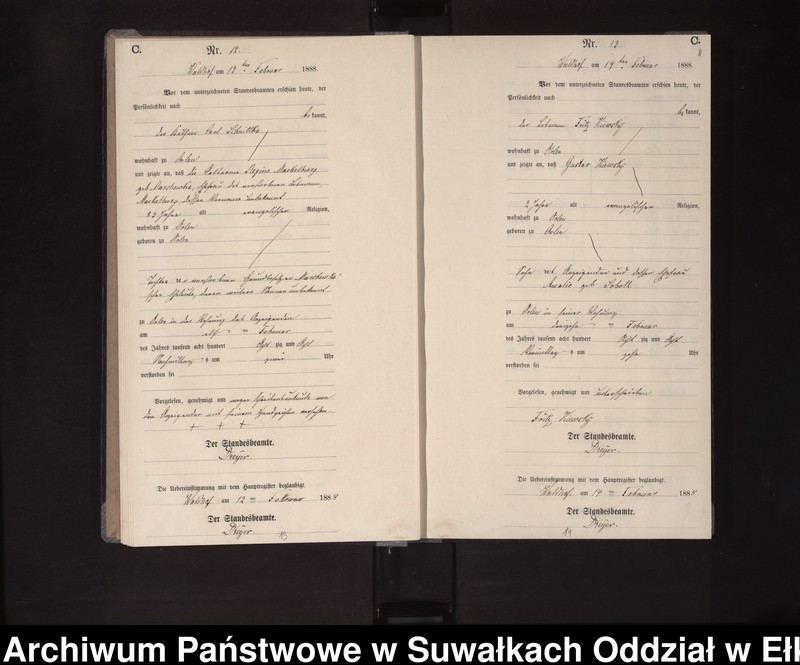 C.
Nr. 12.
Waldhof am 12 ten Februar 1888.
Vor dem unterzeichneten Standesbeamten erschien heute, der
Persönlichkeit nach
be kannt,
der Carl
wohnhaft zu
und zeigte an, daß die
geb. des verstorbenen
dessen Vorname unbekannt
83 Jahre alt evangelischer Religion,
wohnhaft zu
geboren zu
Tochter der verstorbenen Grundbesitzer
deren weitere Namen unbekannt
zu in der Wohnung des Anzeigenden
am elf ten Februar
des Jahres tausend acht hundert Acht zig und Acht
Nachmittags um zwei Uhr
verstorben sei
Vorgelesen, genehmigt und wegen Schreibensunkunde von
dem Anzeigenden mit seinem Handzeichen versehen.
+ + +
Der Standesbeamte.
Dreyer.
Die Uebereinstimmung mit dem Hauptregister beglaubigt.
Waldhof am 12 ten Februar 1888
Der Standesbeamte.
Dreyer.
13
C.
Nr. 13
8
Waldhof am 14 ten Februar 1888.
Vor dem unterzeichneten Standesbeamten erschien heute, der
Persönlichkeit nach
be kannt,
der Fritz
wohnhaft zu
und zeigte an, daß Gustav
2 Jahre alt evangelischer Religion,
wohnhaft zu
geboren zu
Sohn des Anzeigenden und dessen Ehefrau
Amalie geb.
zu in seiner Wohnung
am dreizehn ten Februar
des Jahres tausend acht hundert Acht zig und Acht
Vormittags um zehn Uhr
verstorben sei
Vorgelesen, genehmigt und unterschrieben
Fritz
Der Standesbeamte.
Dreyer.
Die Uebereinstimmung mit dem Hauptregister beglaubigt.
Waldhof am 14 ten Februar 1888
Der Standesbeamte.
Dreyer.
14
Archiwum Państwowe w Suwałkach Oddział w Ełk